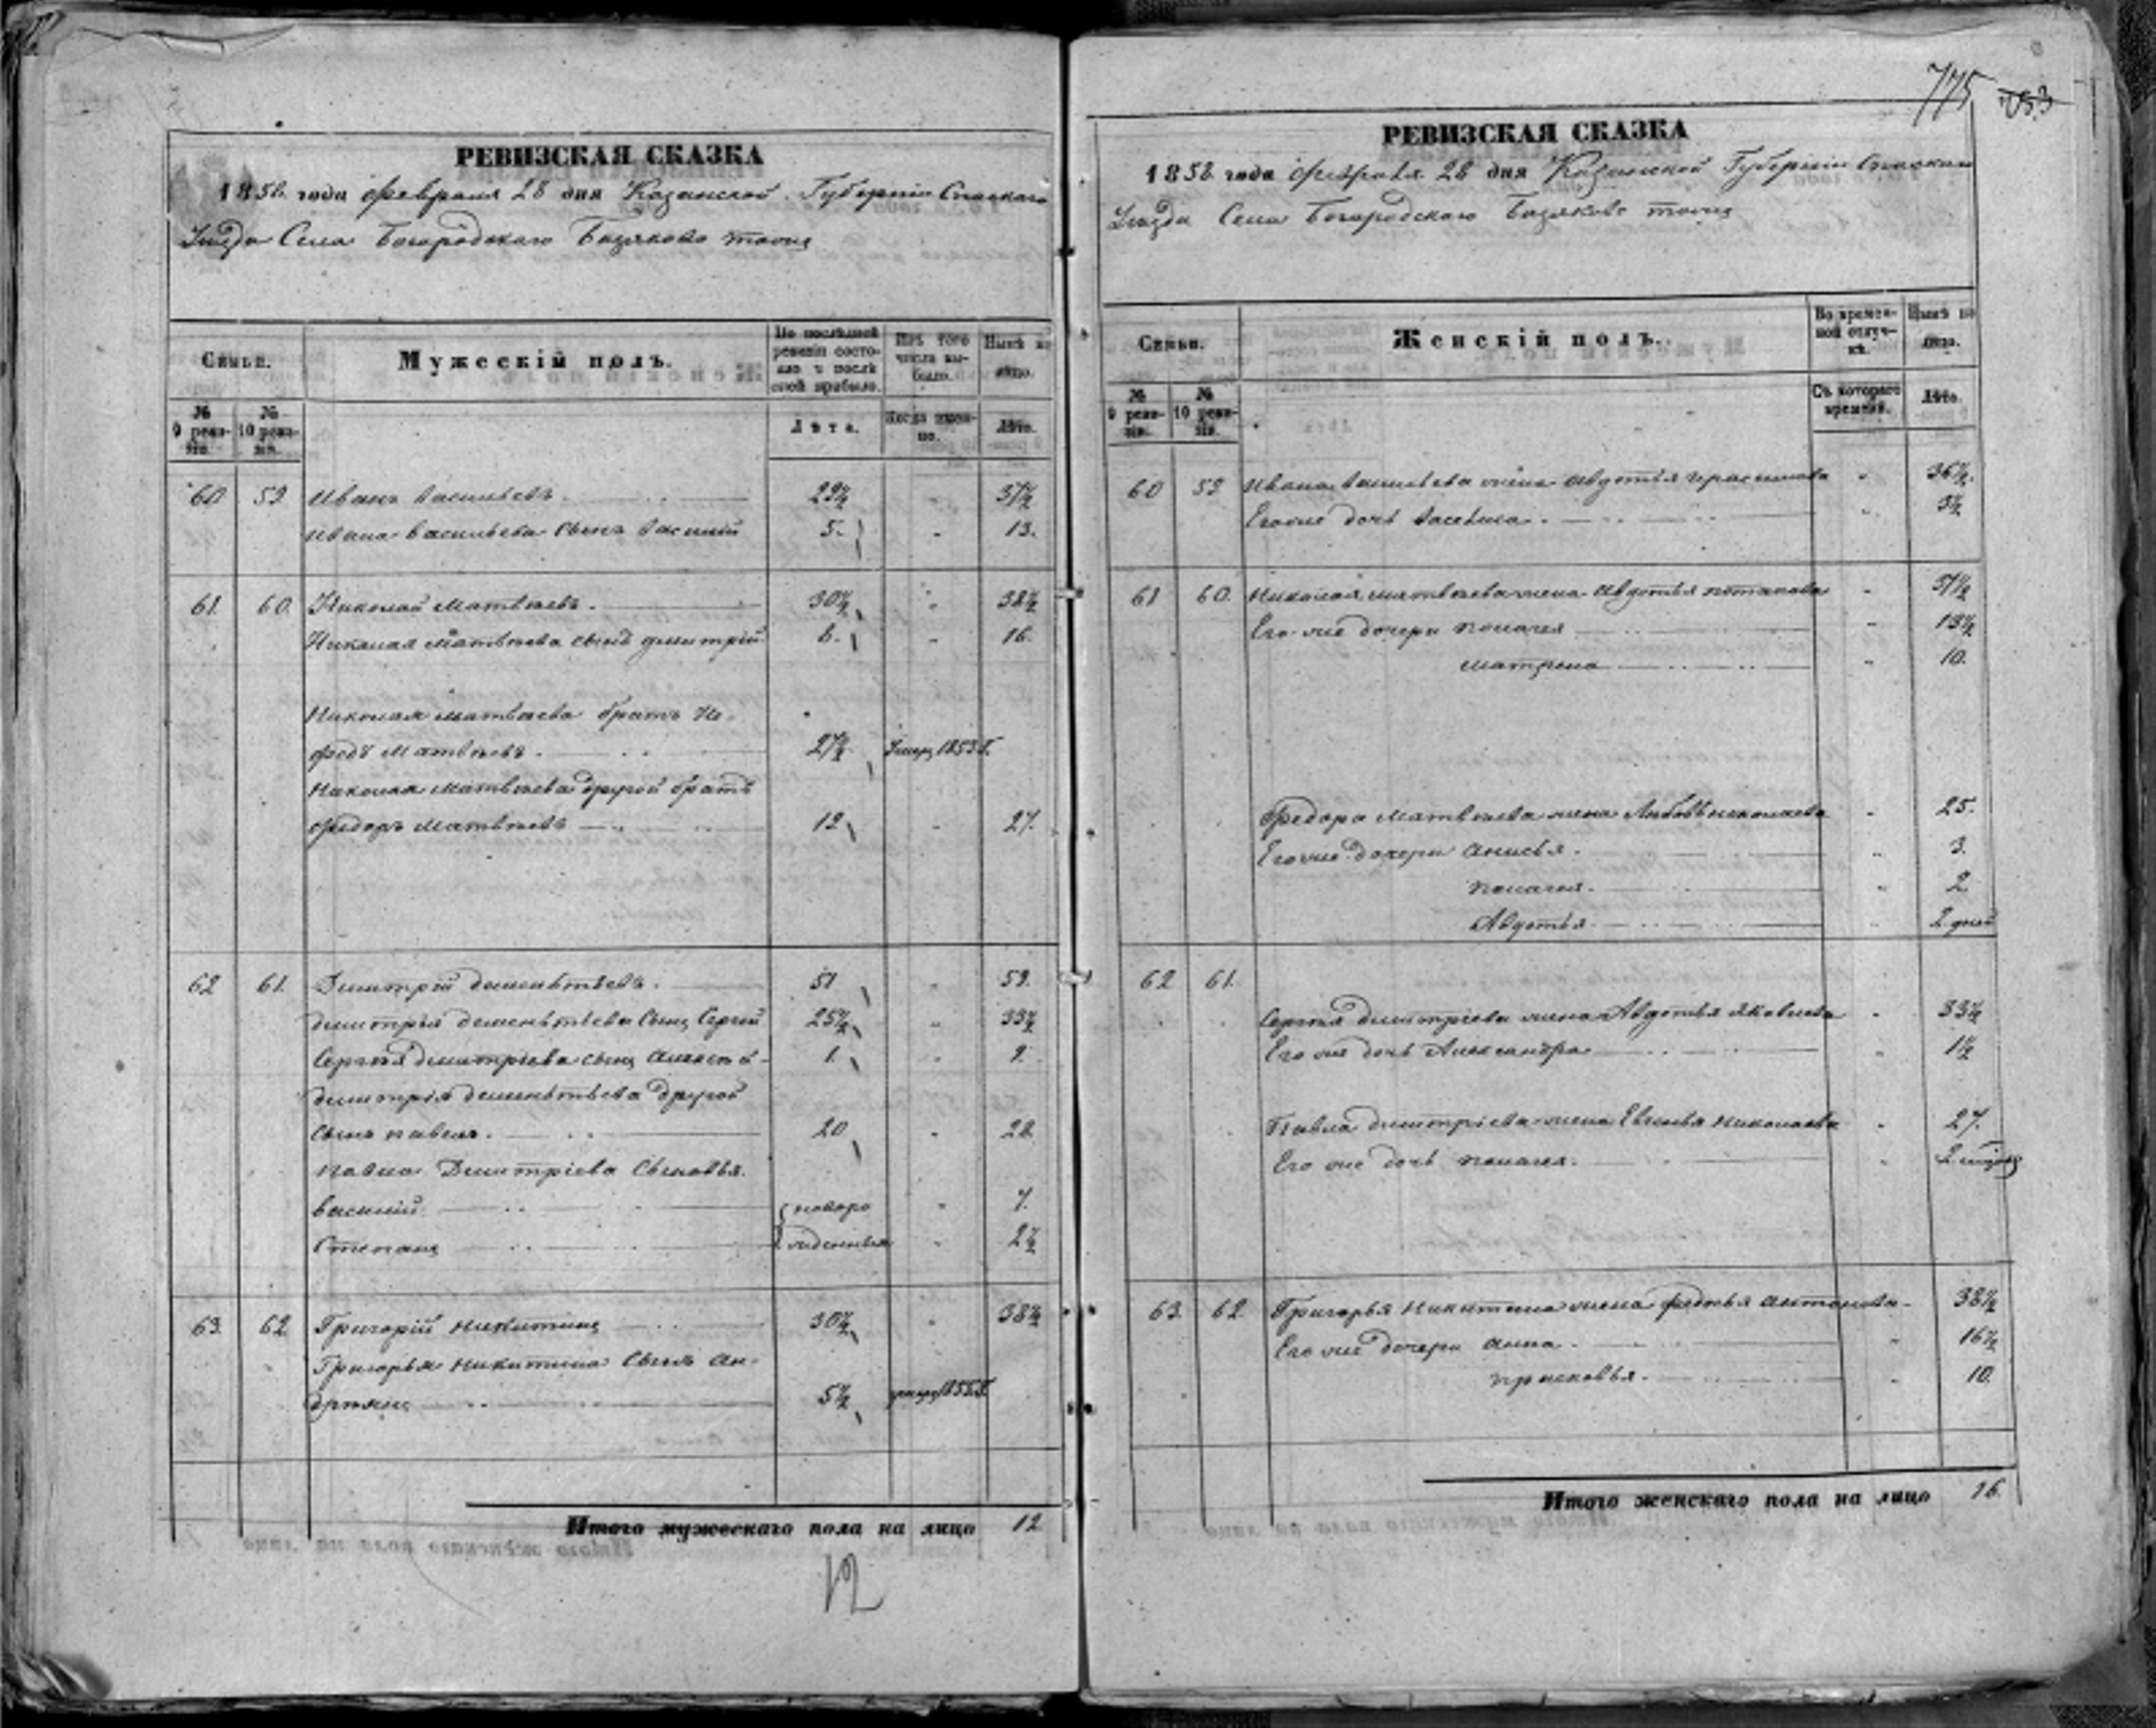 775
РЕВИЗСКАЯ СКАЗКА
1858 года февраля 28 дня Казанской Губерніи Спаскаго
Уезда Села Богородскаго Базяково тожъ
Семьи.
Мужескій полъ.
По послѣдней ревизіи состояло и послѣ оной прибыло.
Изъ того числа выбыло.
Нынѣ на лицо.
№ 9 ревизіи.
№ 10 ревизіи.
Лѣта.
Когда именно.
Лѣта.
60 59 Иванъ Васильевъ. 29½ 37½
Ивана Васильева сынъ Василій 5. 13.
61. 60. Николай Матвѣевъ. 30½ 38½
Николая Матвѣева сынъ Дмитрій 8. 16.
Николая Матвѣева братъ
Матвѣевъ. 27½ 1853 г.
Николая Матвѣева другой братъ
Федоръ Матвѣевъ 19 27.
62 61. Димитрій Дементьевъ. 51 59.
Димитрія Дементьева сынъ Сергѣй 25½ 33½
Сергѣя Димитріева сынъ Алексѣй 1. 9.
Димитрія Дементьева другой
сынъ Павелъ. 20 28
Павла Димитріева сыновья.
Василій новоро 7.
Степанъ жденныя 2½
63. 62 Григорій Никитинъ 30½ 38½
Григорья Никитина сынъ Ан-
дреянъ 5½ 1855 г.
Итого мужескаго пола на лицо 12
12
РЕВИЗСКАЯ СКАЗКА
1858 года февраля 28 дня Казанской Губерніи Спаскаго
Уезда Села Богородскаго Базяково тожъ
Семьи.
Женскій полъ.
Во временной отлучкѣ.
Нынѣ на лицо.
№ 9 ревизіи.
№ 10 ревизіи.
Съ котораго времени.
Лѣта.
60 59 Ивана Васильева жена Авдотья Герасимова 36½.
Его же дочь Василиса. 3½
61 60. Николая Матвѣева жена Авдотья Потапова 37½
Его же дочери Пелагея 13½
Матрена 10.
Федора Матвѣева жена Любовь Николаева 25.
Его же дочери Анисья. 3.
Пелагея. 2
Авдотья 2 дней
62 61.
Сергѣя Димитріева жена Авдотья Яковлева 33½
Его же дочь Александра 1½
Павла Димитріева жена Евгенья Николаева 27.
Его же дочь Пелагея.
63. 62. Григорья Никитина жена Федосья Антонова 38½
Его же дочери Анна. 16½
Прасковья. 10.
Итого женскаго пола на лицо 16.